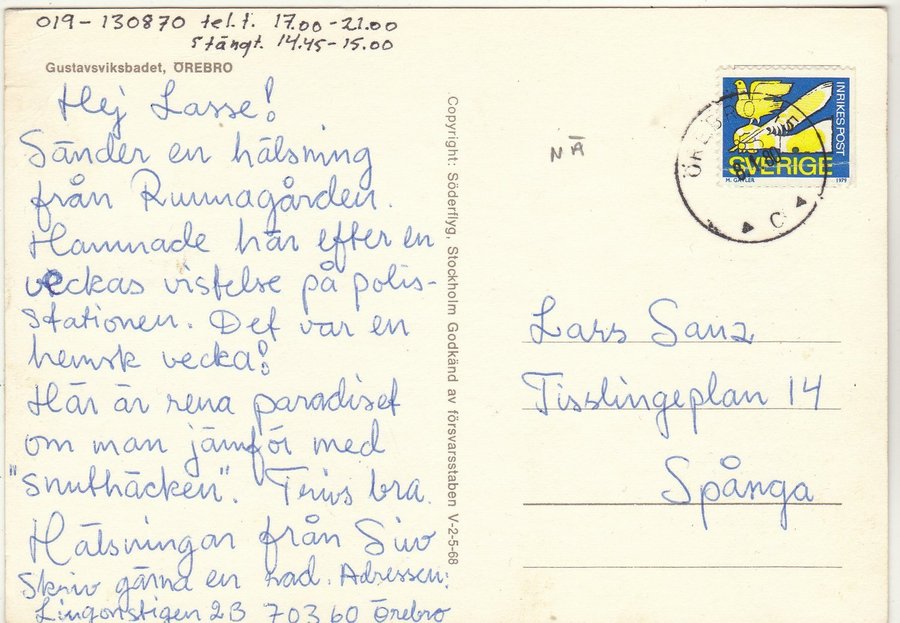 019-130870 tel.t. 17.00-21.00
Stängt. 14.45-15.00
Gustavsviksbadet, ÖREBRO
Hej Lasse!
Sänder en hälsning
från Runnagården.
Hamnade här efter en
veckas vistelse på polis-
stationen. Det var en
hemsk vecka!
Här är rena paradiset
om man jämför med
"snuthäcken". Trivs bra.
Hälsningar från Siv
Skriv gärna en rad. Adressen:
Lingonstigen 2B 703 60 Örebro
Copyright: Söderflyg, Stockholm Godkänd av försvarsstaben V-2-5-68
NÄ
INRIKES POST
SVERIGE
1979
ÖREBRO
C
Lars Sanz
Tisslingeplan 14
Spånga